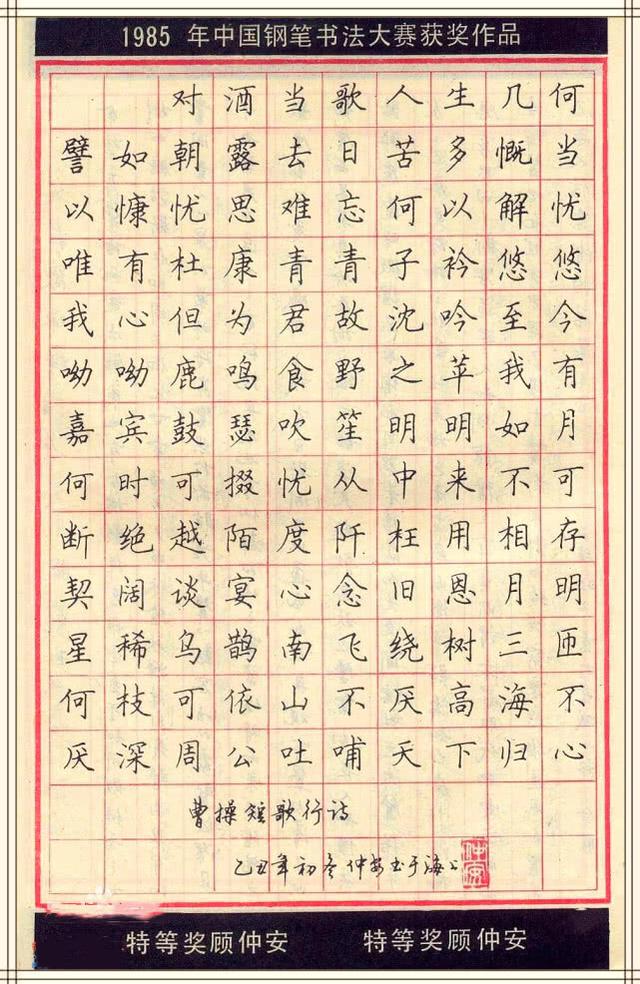 1985 年中国钢笔书法大赛获奖作品
对酒当歌人生几何
譬如朝露去日苦多慨当
以慷忧思难忘何以解忧
唯有杜康青青子衿悠悠
我心但为君故沈吟至今
呦呦鹿鸣食野之苹我有
嘉宾鼓瑟吹笙明明如月
何时可掇忧从中来不可
断绝越陌度阡枉用相存
契阔谈宴心念旧恩月明
星稀乌鹊南飞绕树三匝
何枝可依山不厌高海不
厌深周公吐哺天下归心
曹操短歌行诗
乙丑年初冬仲安书于海上
仲安
特等奖顾仲安 特等奖顾仲安